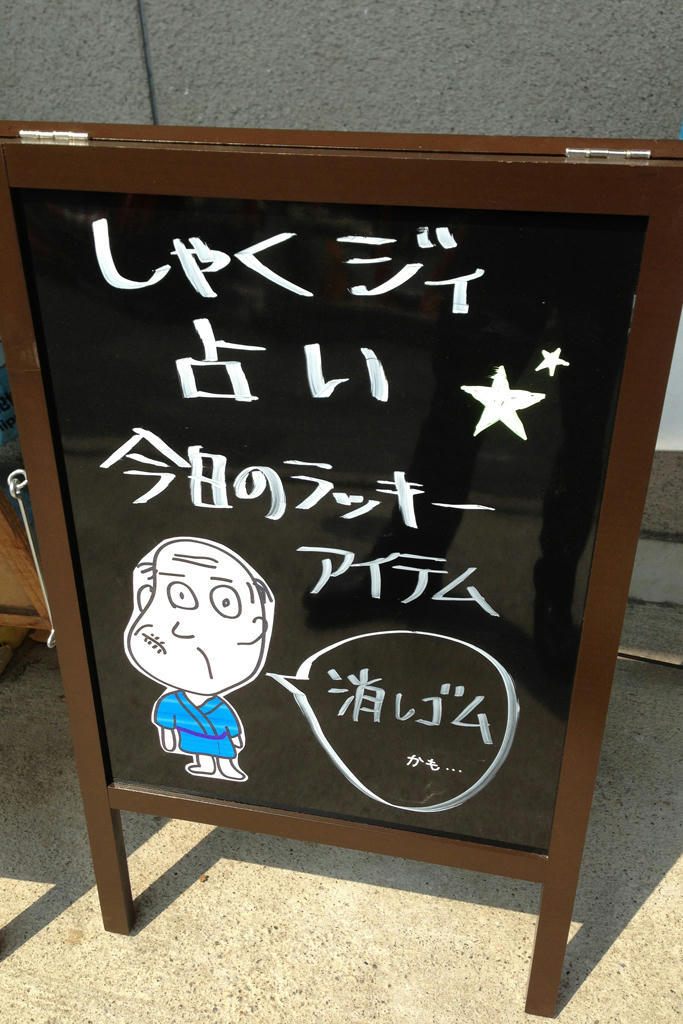 しゃくジィ
占い
今日のラッキー
アイテム
消しゴム
かも…